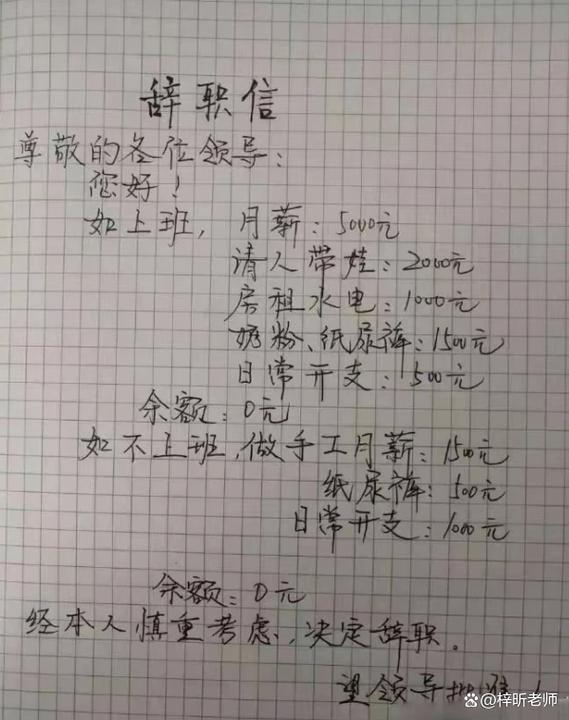 辞职信
尊敬的各位领导:
您好!
如上班, 月薪: 5000元
请人带娃: 2000元
房租水电: 1000元
奶粉、纸尿裤: 1500元
日常开支: 500元
余额: 0元
如不上班,做手工月薪: 1500元
纸尿裤: 500元
日常开支: 1000元
余额: 0元
经本人慎重考虑,决定辞职.
望领导批准!
@梓昕老师